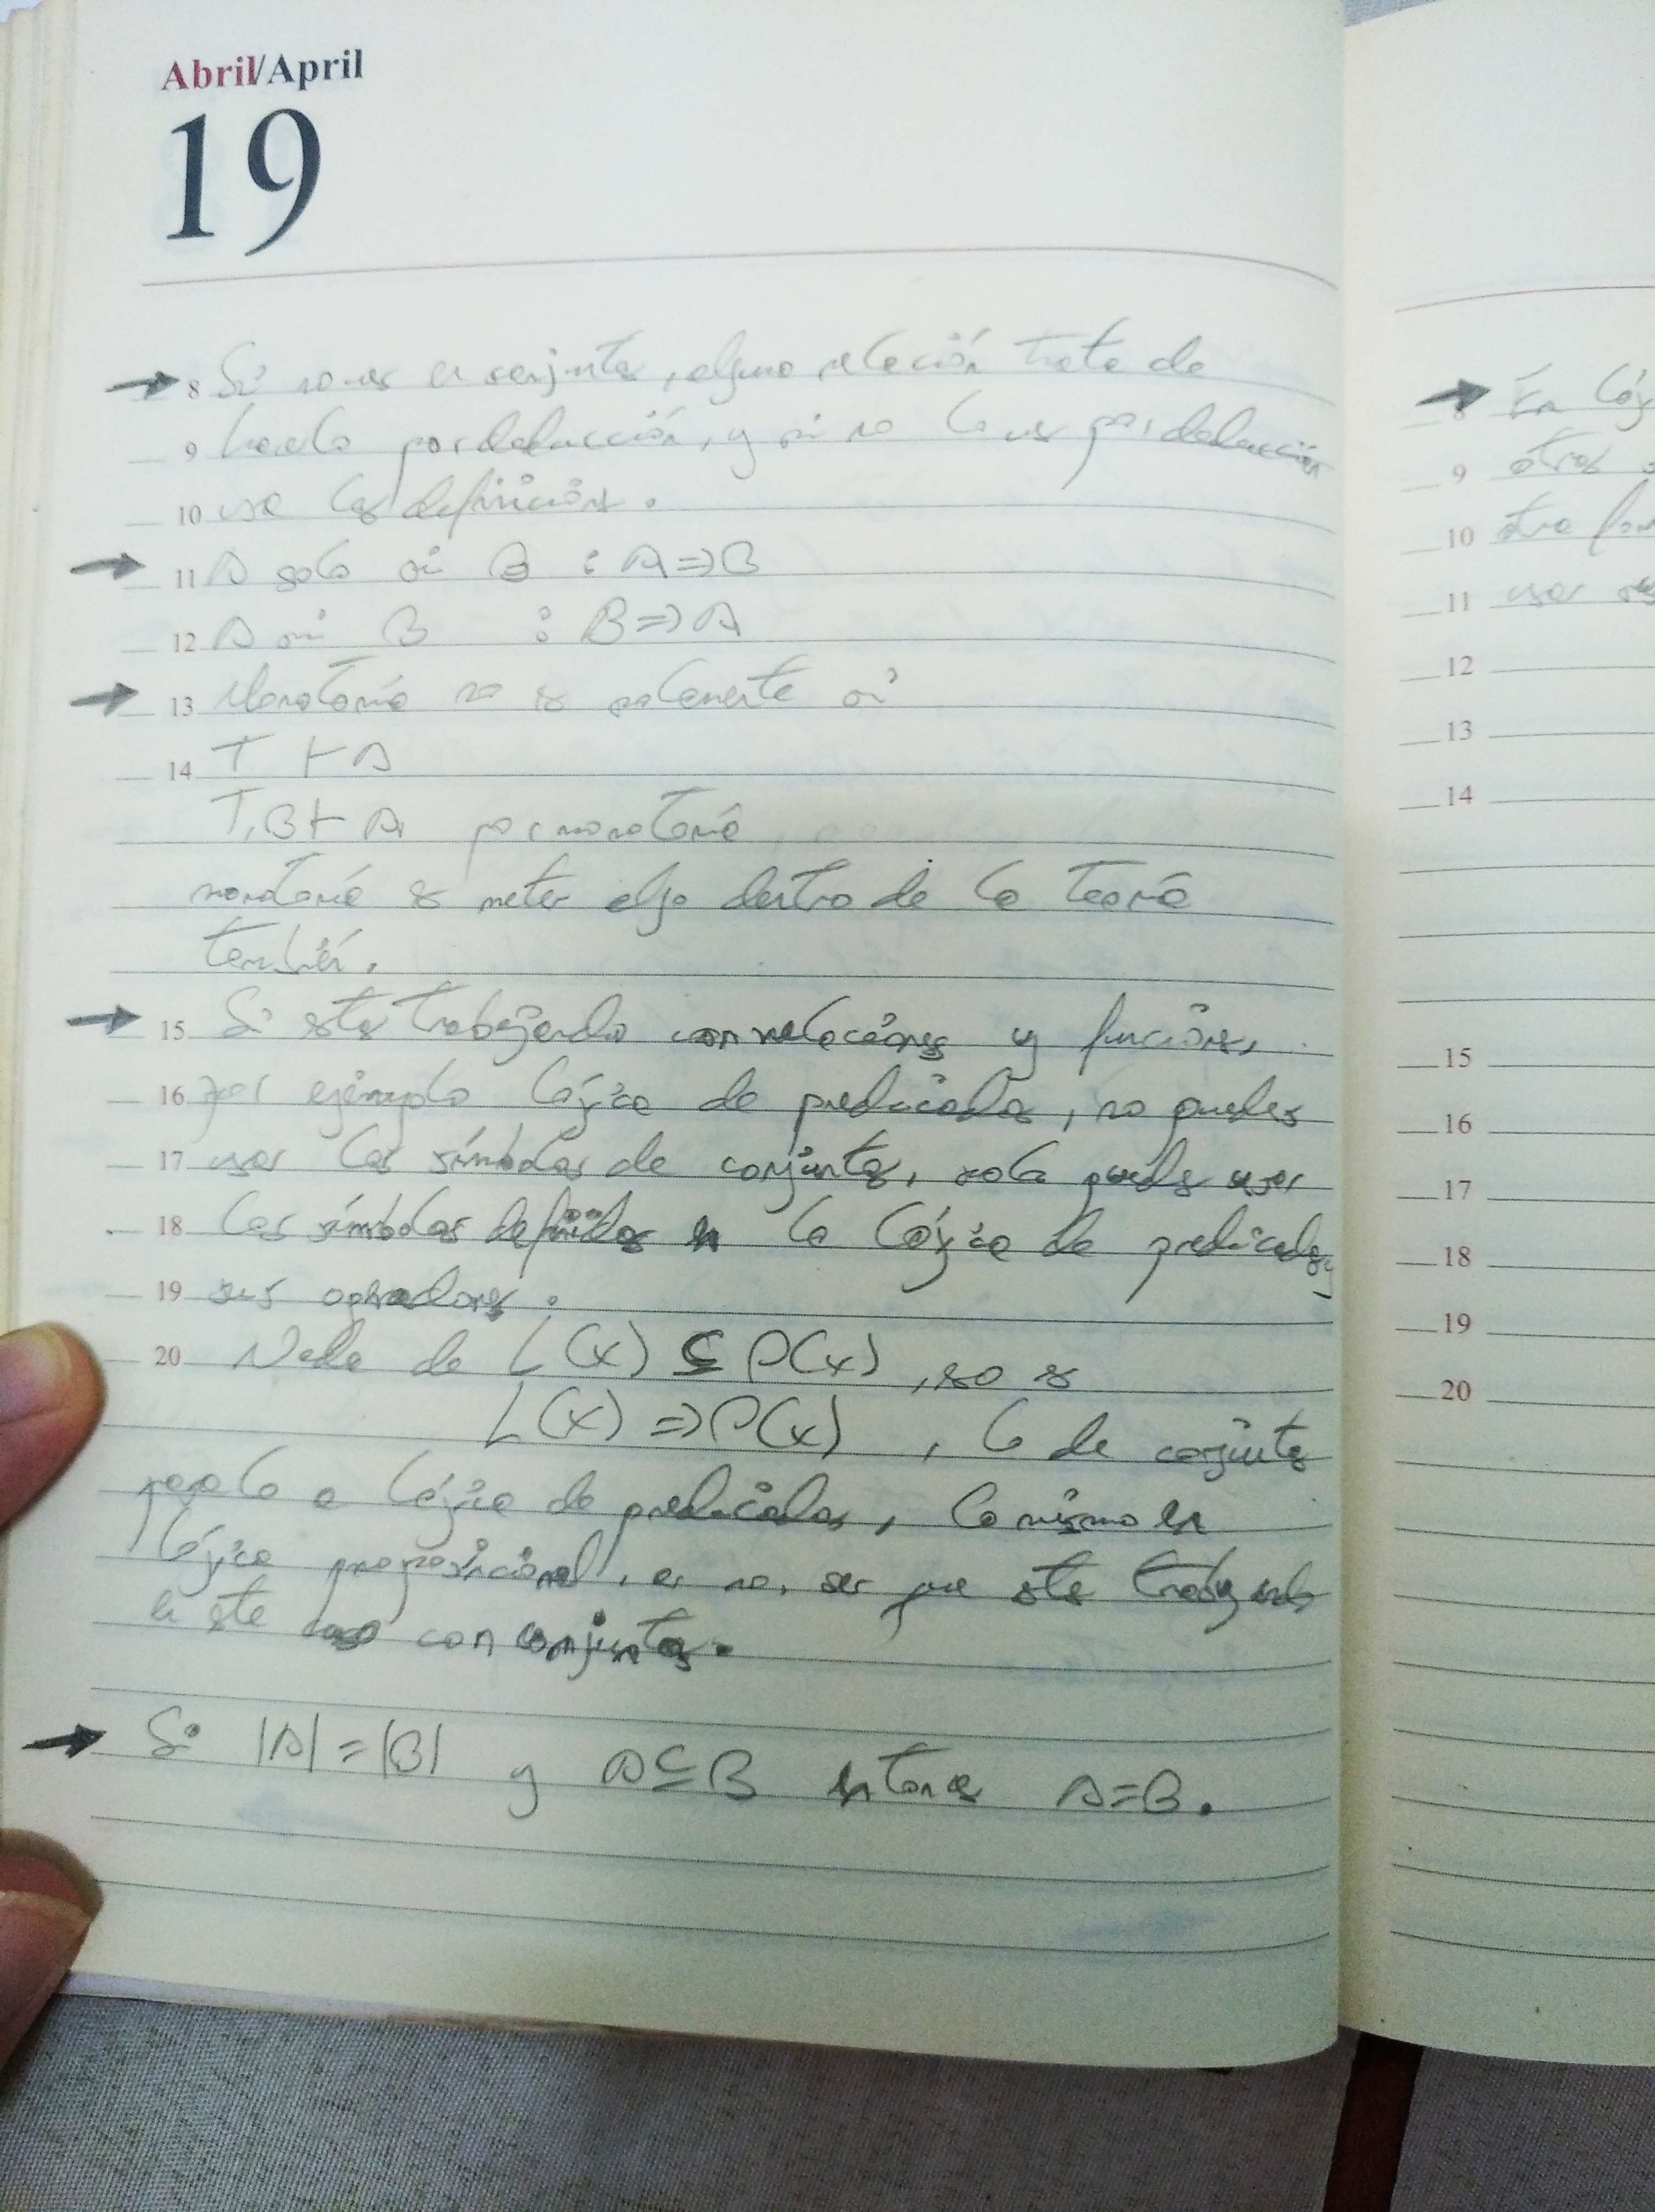 Abril/April
19
→ 8 Si no ves en conjuntos, alguna relación trata de
9 hacerlo por deducción, y si no lo ves por deducción
10 usa las definiciones.
→ 11 A solo si B : A ⇒ B
12 A si B : B ⇒ A
→ 13 Monotonía no es solamente si
14 T ⊢ A
T, B ⊢ A, por monotonía
monotonía es meter algo dentro de la teoría
también.
→ 15 Si estas trabajando con relaciones y funciones,
16 por ejemplo lógica de predicados, no puedes
17 usar los símbolos de conjuntos, solo puedes usar
18 los símbolos definidos en la lógica de predicados y
19 sus operadores.
20 Nada de L(x) ⊆ P(x), eso es
L(x) ⇒ P(x), lo de conjuntos
pasalo a lógica de predicados, lo mismo en
lógica proposicional, a no, ser que estes trabajando
en este caso con conjuntos.
→ Si |A| = |B| y A ⊆ B entonces A = B.
→ 8 En lóg
9 otros
10 otra for
11 usar
12
13
14
15
16
17
18
19
20